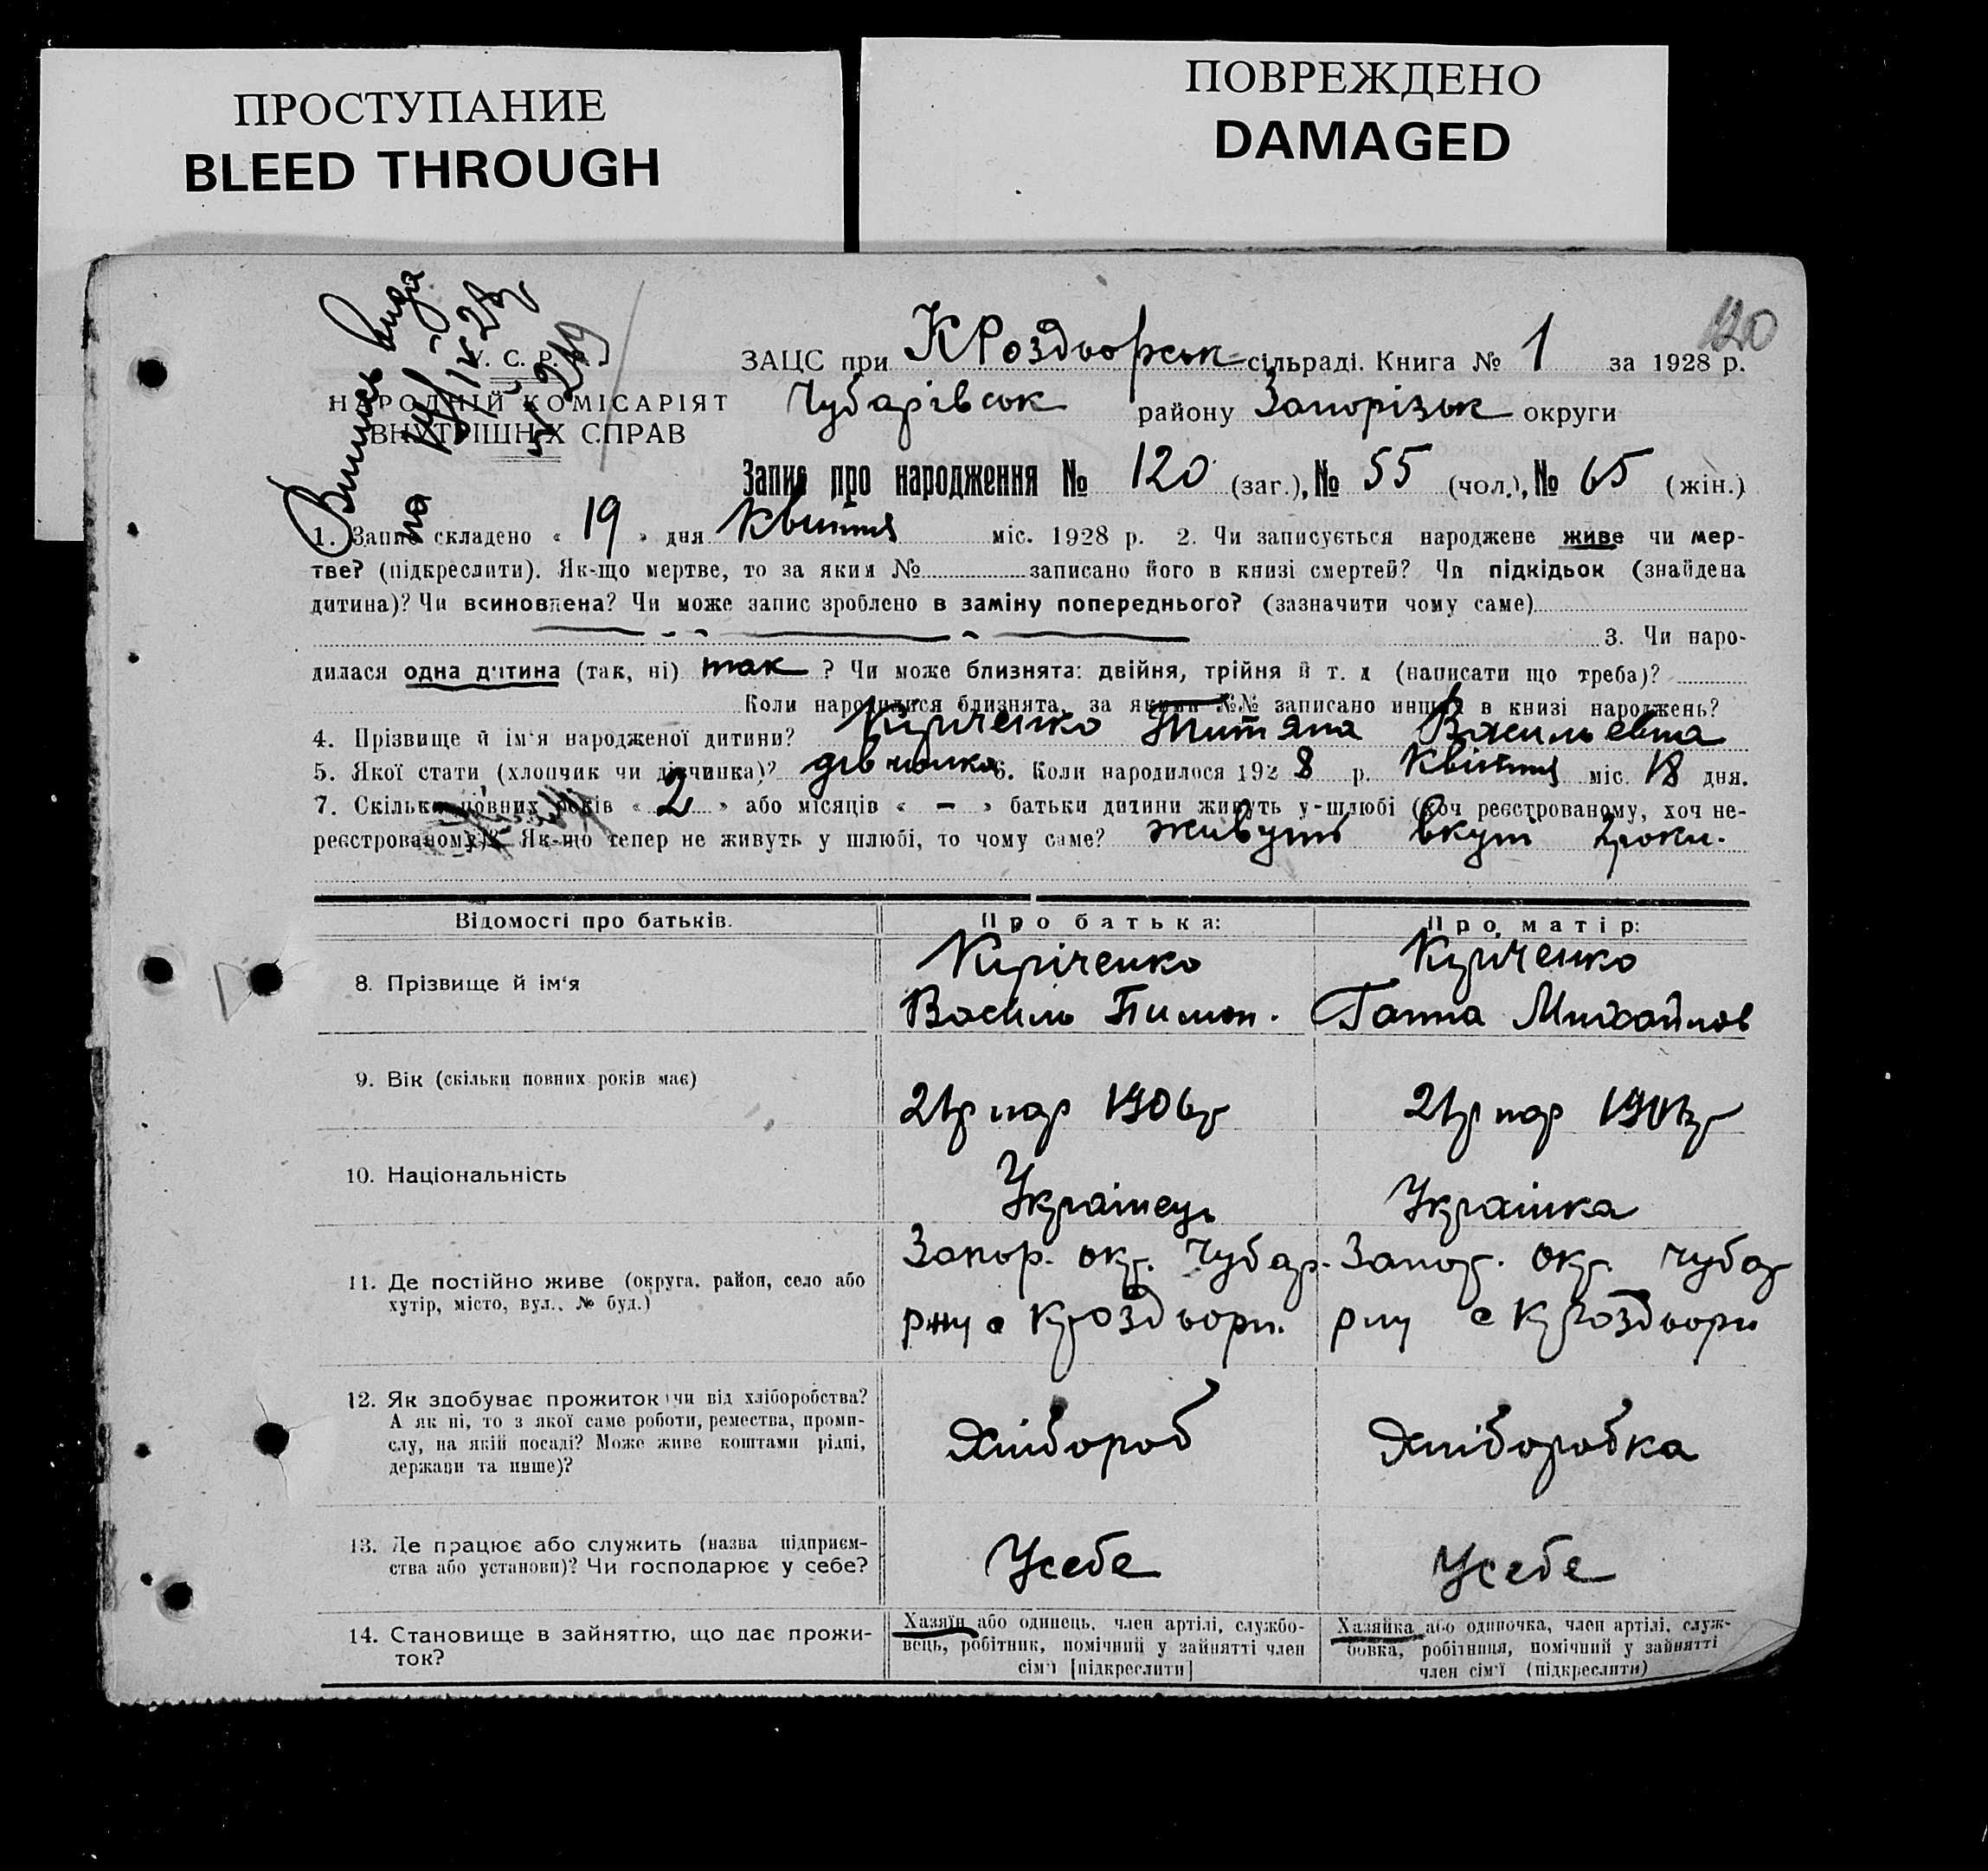 ПРОСТУПАНИЕ
BLEED THROUGH
ПОВРЕЖДЕНО
DAMAGED
120
У. С. Р. Р.
НАРОДНІЙ КОМІСАРІЯТ
ВНУТРІШНІХ СПРАВ
ЗАЦС при К Роздворськ сільраді. Книга № 1 за 1928 р.
Чубарівськ району Запорізьк округи
Запис про народження № 120 (заг.), № 55 (чол.), № 65 (жін.)
1. Запис складено « 19 » дня Квітня міс. 1928 р. 2. Чи записується народжене живе чи мер-
тве? (підкреслити). Як-що мертве, то за яким № записано його в книзі смертей? Чи підкідьок (знайдена
дитина)? Чи всиновлена? Чи може запис зроблено в заміну попереднього? (зазначити чому саме)
3. Чи наро-
дилася одна дитина (так, ні) так ? Чи може близнята: двійня, трійня й т. д (написати що треба)?
Коли народилися близнята, за якими №№ записано инших в книзі народжень?
4. Прізвище й ім‘я народженої дитини? Кириченко Титяна Васильевна
5. Якої стати (хлопчик чи дівчинка)? дівчинка 6. Коли народилося 1928 р. Квітня міс. 18 дня.
7. Скільки повних років « 2 » або місяців « – » батьки дитини живуть у-шлюбі (хоч реєстрованому, хоч не-
реєстрованому)? Як-що тепер не живуть у шлюбі, то чому саме? живуть вкупі 2 роки.
Відомості про батьків. Про батька: Про матір:
8. Прізвище й ім‘я Кіріченко Василь Пимон. Кириченко Ганна Михайлов
9. Вік (скільки повних років має) 21р нар 1906р 21р нар
10. Національність Українець Українка
11. Де постійно живе (округа, район, село або
хутір, місто, вул., № буд.)
Запор. окр. Чубар. рну с Кроздвори. Запор. окр. Чубар рну с Кроздвори
12. Як здобуває прожиток чи від хліборобства?
А як ні, то з якої саме роботи, ремества, проми-
слу, на якій посаді? Може живе коштами рідні,
держави та инше)?
Хлібороб Хліборобка
13. Де працює або служить (назва підприєм-
ства або установи)? Чи господарює у себе?
Усебе Усебе
14. Становище в зайняттю, що дає прожи-
ток?
Хазяїн або одинець, член артілі, службо-
вець, робітник, помічний у зайнятті член
сім‘ї [підкреслити]
Хазяйка або одиночка, член артілі, служ-
бовка, робітниця, помічний у зайнятті
член сім‘ї (підкреслити)